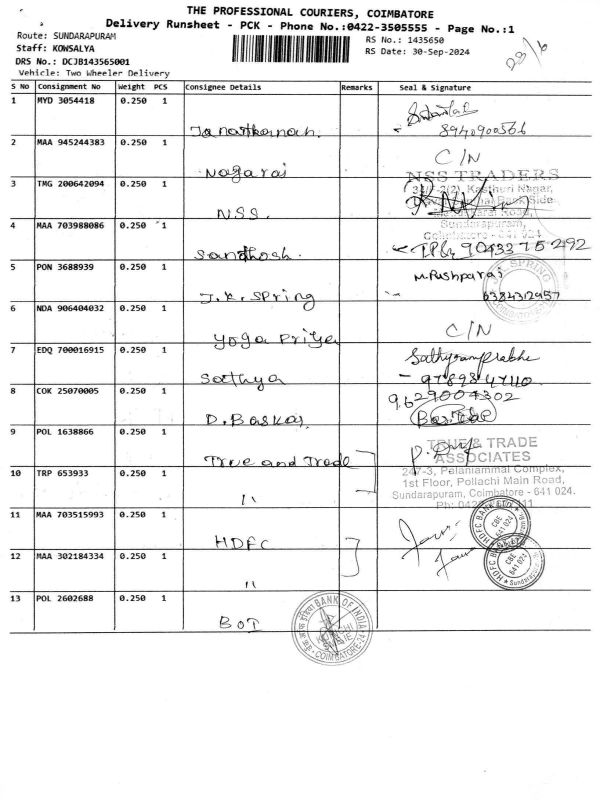 THE PROFESSIONAL COURIERS, COIMBATORE
Delivery Runsheet - PCK - Phone No.:0422-3505555 - Page No.:1
Route: SUNDARAPURAM
RS No.: 1435650
Staff: KOWSALYA
RS Date: 30-Sep-2024
DRS No.: DCJB143565001
Vehicle: Two Wheeler Delivery
S No Consignment No Weight PCS Consignee Details Remarks Seal & Signature
1 MYD 3054418 0.250 1
8940900566
2 MAA 945244383 0.250 1
Nagaraj C/N
NSS TRADERS
3 TMG 200642094 0.250 1
Kasthuri Nagar,
NSS.
Sundarapuram,
Coimbatore - 641 024
4 MAA 703988086 0.250 1
Sandhosh. 9043375292
5 PON 3688939 0.250 1
M. Pushparaj
J.K. Spring 6384312957
6 NDA 906404032 0.250 1
Yoga Priya C/N
7 EDQ 700016915 0.250 1
Sathya 9789847110
8 COK 25070005 0.250 1
9629004302
D. Baskar
9 POL 1638866 0.250 1
TRUE & TRADE
ASSOCIATES
True and Trade
10 TRP 653933 0.250 1
247-3, Pelaniammal Complex,
1st Floor, Pollachi Main Road,
Sundarapuram, Coimbatore - 641 024.
11
11 MAA 703515993 0.250 1
HDFC
HDFC BANK LTD
CBE
641 024
12 MAA 302184334 0.250 1
11
HDFC BANK
CBE
641 024
Sundarapuram
13 POL 2602688 0.250 1
BOI
BANK OF INDIA
COIMBATORE-24